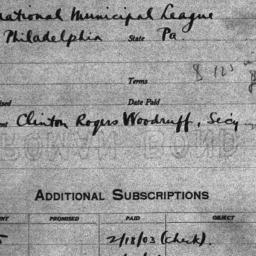 national Municipal League
Philadelphia State Pa.
Terms
Date Paid
Clinton Rogers Woodruff, Secy
BOWMAN BOND
ADDITIONAL SUBSCRIPTIONS
PROMISED PAID OBJECT
2/18/03 (Check).